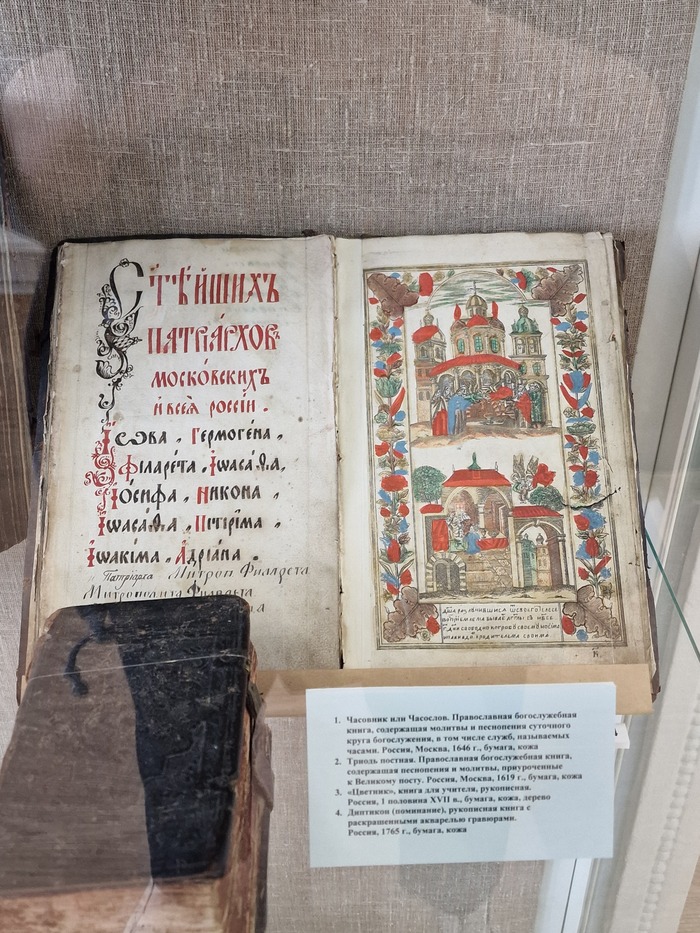 Ст҃ѣ́йшихъ
патрїа́рховъ
моско́вскихъ
и҆ всеѧ̀ россі́и .
І҆ѡ́ва , Гермоге́на ,
Філаре́та , І҆ѡаса́ѳа ,
І҆о́сифа , Ни́кона ,
І҆ѡаса́ѳа , Пїтїрі́ма ,
І҆ѡакі́ма , А҆дрїа́на .
и Патрїарха Митроп Филарета
Митрополита
1. Часовник или Часослов. Православная богослужебная
книга, содержащая молитвы и песнопения суточного
круга богослужения, в том числе служб, называемых
часами. Россия, Москва, 1646 г., бумага, кожа
2. Триодь постная. Православная богослужебная книга,
содержащая песнопения и молитвы, приуроченные
к Великому посту. Россия, Москва, 1619 г., бумага, кожа
3. «Цветник», книга для учителя, рукописная.
Россия, 1 половина XVII в., бумага, кожа, дерево
4. Диптикон (поминание), рукописная книга с
раскрашенными акварелью гравюрами.
Россия, 1765 г., бумага, кожа